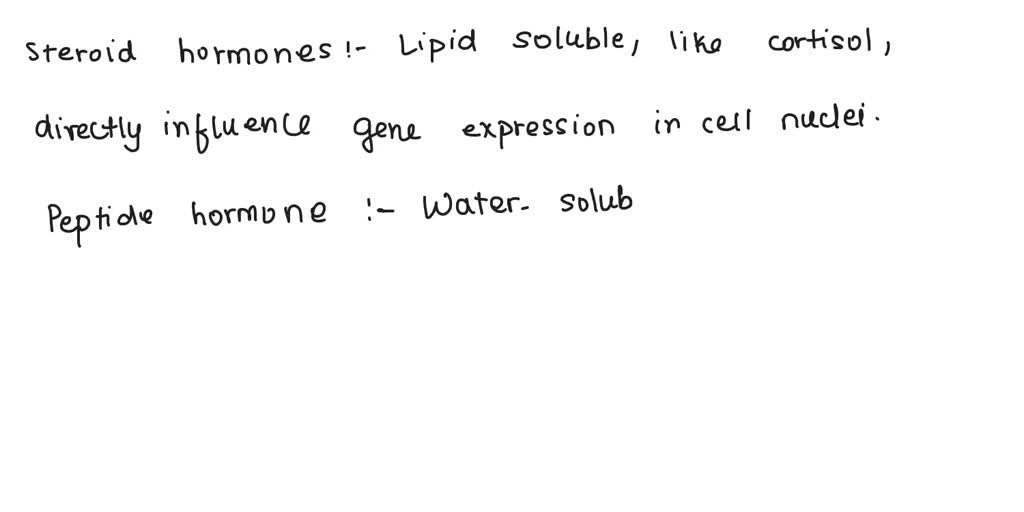 Steroid hormones :- Lipid soluble, like cortisol,
directly influence gene expression in cell nuclei.
Peptide hormone :- Water- solub